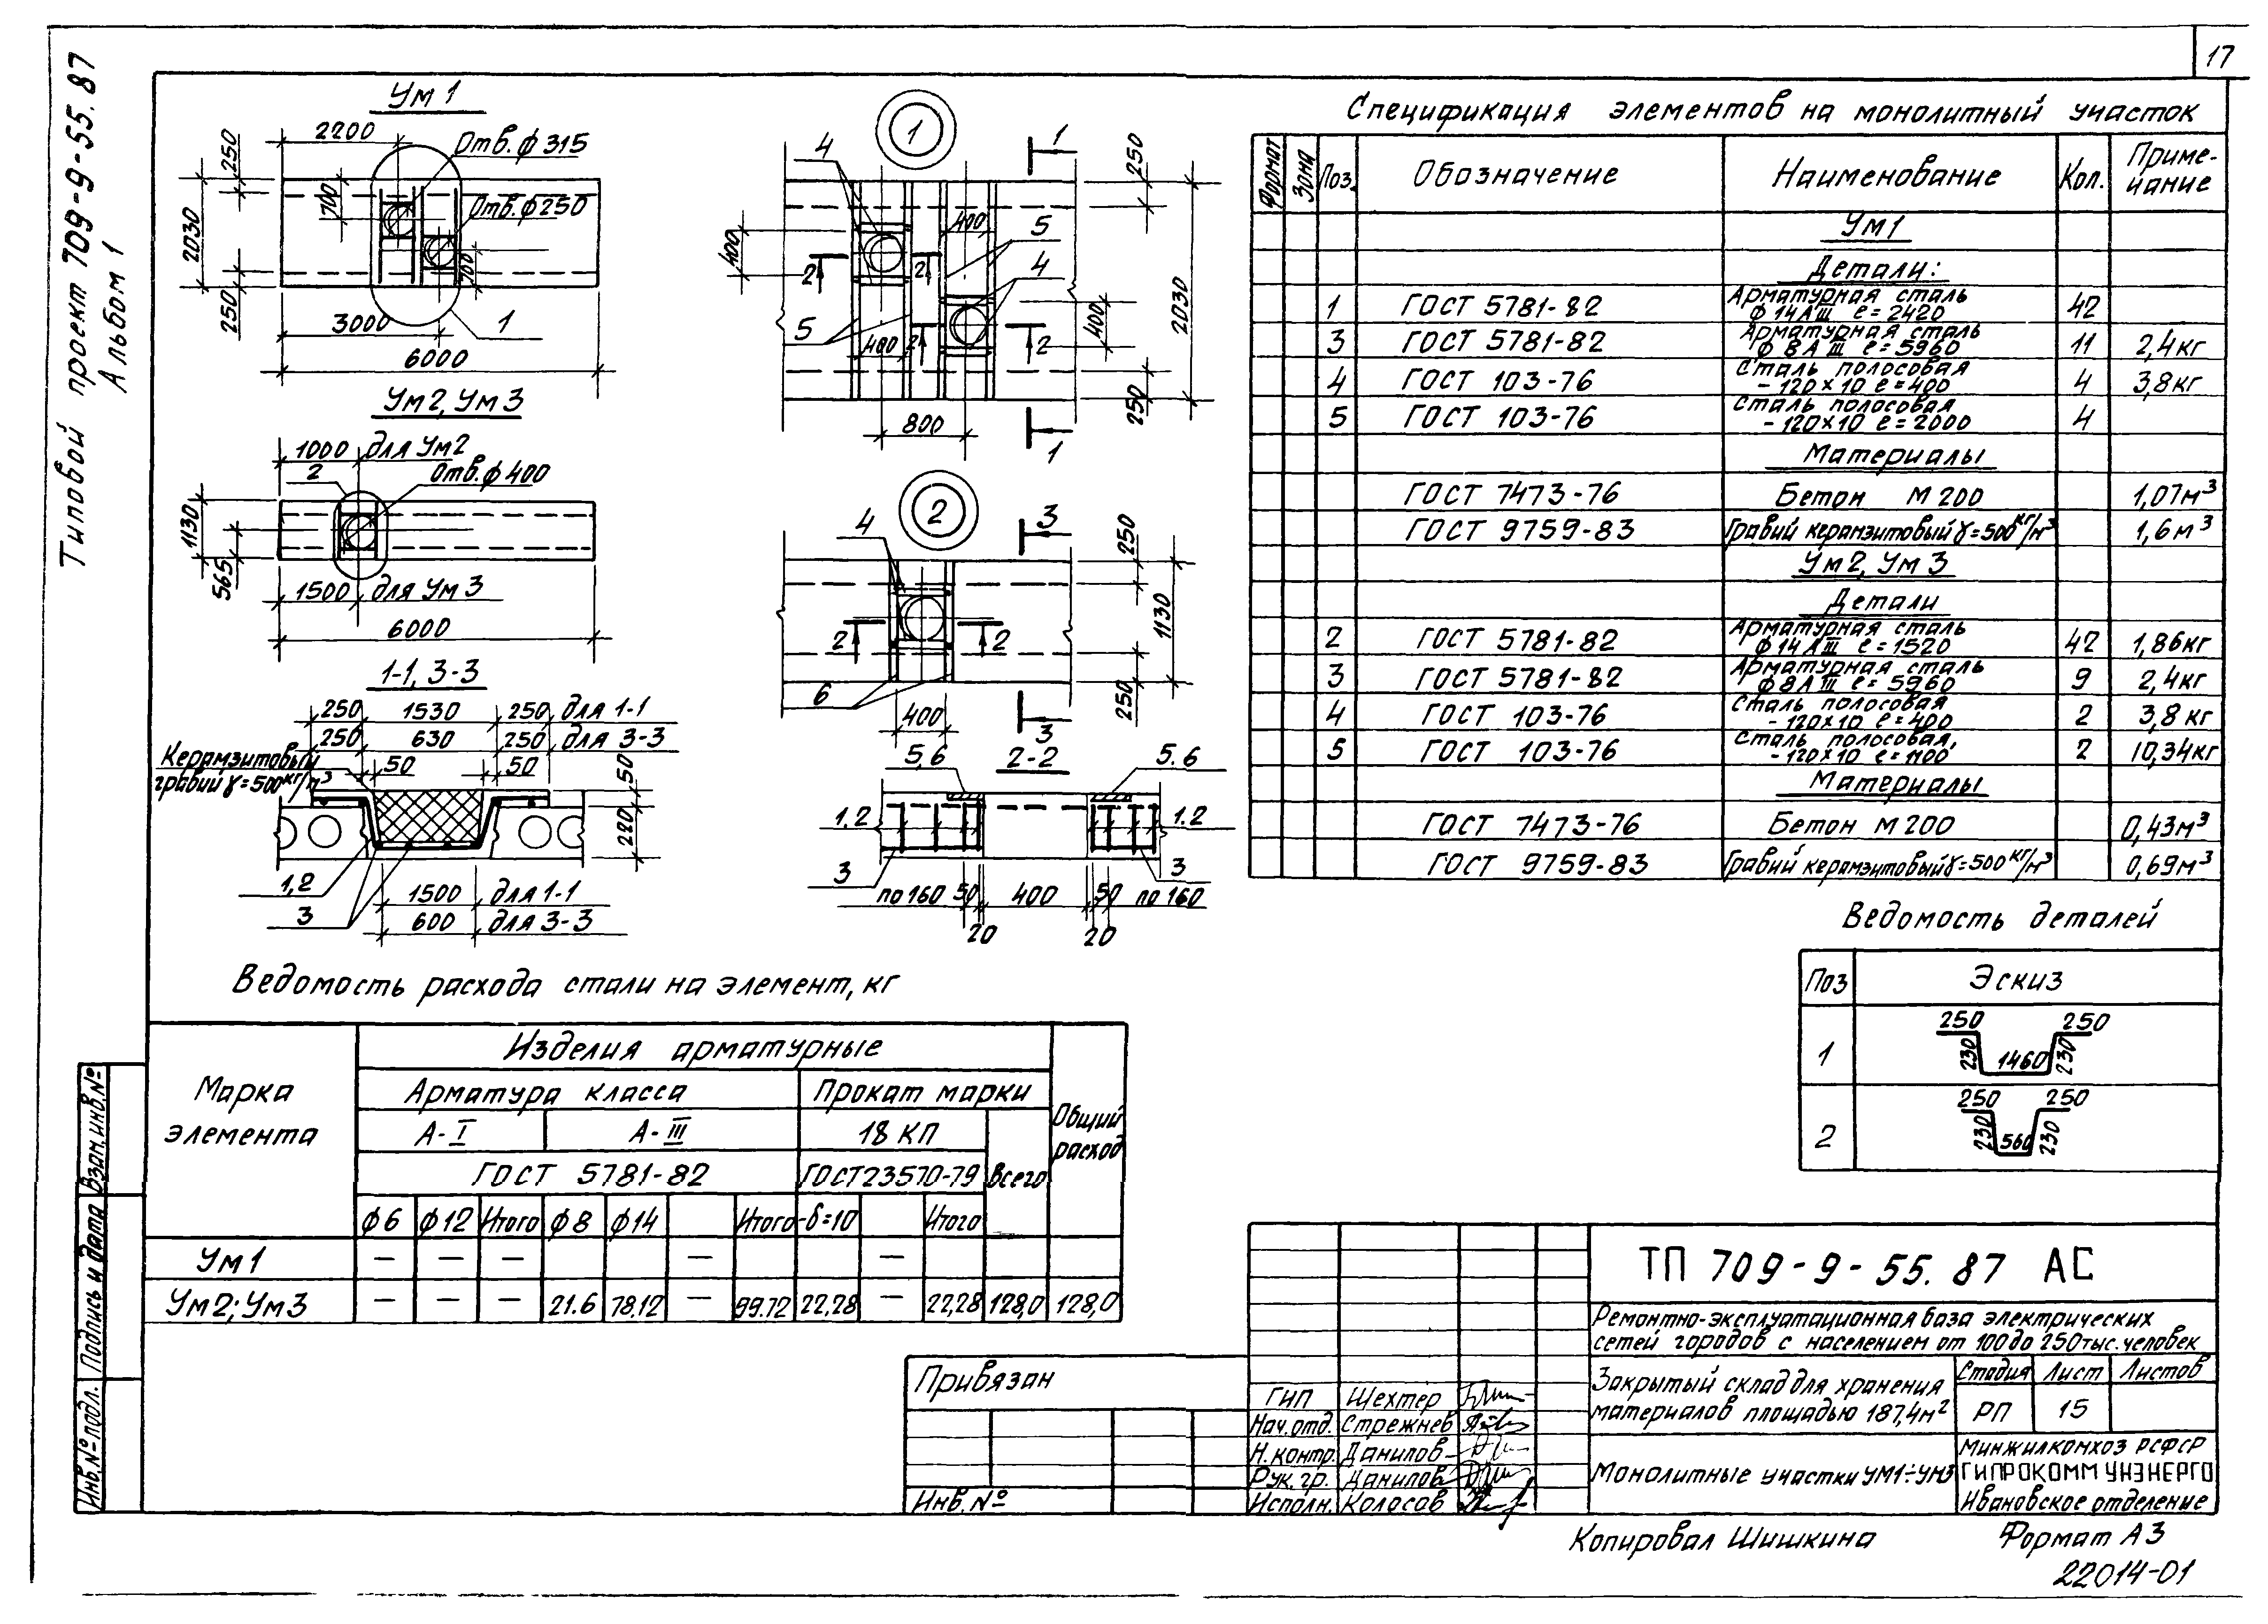 17
Типовой проект 709-9-55.87
Альбом 1
Ум 1
2200
Отв. ф 315
250
700
Отв. ф 250
2030
700
250
3000
1
6000
Ум2, Ум3
1000 для Ум2
2
Отв. ф 400
1130
565
1500 для Ум3
6000
1-1, 3-3
250 1530 250 для 1-1
250 630 250 для 3-3
Керамзитовый
гравий γ=500кг/м³
50 50
50
220
1,2
3
1500 для 1-1
600 для 3-3
1
4
1
250
400
400
5
4
2 2
2030
5
400
400
2 2
250
800
1
2
4
3
250
1130
2 2
6
400
250
3
5,6 2-2 5.6
1.2 1.2
3 3
по 160 50 400 50 по 160
20 20
Спецификация элементов на монолитный участок
Формат Зона Поз. Обозначение Наименование Кол. Приме-
чание
Ум1
Детали:
1 ГОСТ 5781-82 Арматурная сталь
ф 14АIII ℓ=2420 42
3 ГОСТ 5781-82 Арматурная сталь
ф 8АIII ℓ=5960 11 2,4кг
4 ГОСТ 103-76 Сталь полосовая
-120×10 ℓ=400 4 3,8кг
5 ГОСТ 103-76 Сталь полосовая
-120×10 ℓ=2000 4
Материалы
ГОСТ 7473-76 Бетон М200 1,07м³
ГОСТ 9759-83 Гравий керамзитовый γ=500кг/м³ 1,6м³
Ум2, Ум3
Детали
2 ГОСТ 5781-82 Арматурная сталь
ф14АIII ℓ=1520 42 1,86кг
3 ГОСТ 5781-82 Арматурная сталь
ф8АIII ℓ=5960 9 2,4кг
4 ГОСТ 103-76 Сталь полосовая
-120×10 ℓ=400 2 3,8кг
5 ГОСТ 103-76 Сталь полосовая,
-120×10 ℓ=1100 2 10,34кг
Материалы
ГОСТ 7473-76 Бетон М200 0,43м³
ГОСТ 9759-83 Гравий керамзитовый γ=500кг/м³ 0,69м³
Ведомость деталей
Поз Эскиз
1 250 230 1460 230 250
2 250 230 560 230 250
Ведомость расхода стали на элемент, кг
Марка
элемента
Изделия арматурные
Общий
расход
Арматура класса Прокат марки
А-I А-III 18 КП Всего
ГОСТ 5781-82 ГОСТ23570-79
ф6 ф12 Итого ф8 ф14 Итого -δ=10 Итого
Ум1 — — — — —
Ум2; Ум3 — — — 21.6 78,12 — 99.72 22,28 22,28 128,0 128,0
Взам.инв.№
Подпись и дата
Инв.№ подл.
Привязан
Инв.№
ГИП Шехтер
Нач.отд. Стрежнев
Н.контр. Данилов
Рук. гр. Данилов
Исполн. Колосов
ТП 709-9-55.87 АС
Ремонтно-эксплуатационная база электрических
сетей городов с населением от 100 до 250тыс.человек
Закрытый склад для хранения
материалов площадью 187,4м²
Стадия Лист Листов
РП 15
Монолитные участки УМ1÷УМ3
Минжилкомхоз РСФСР
ГИПРОКОММУНЭНЕРГО
Ивановское отделение
Копировал Шишкина Формат А3
22014-01